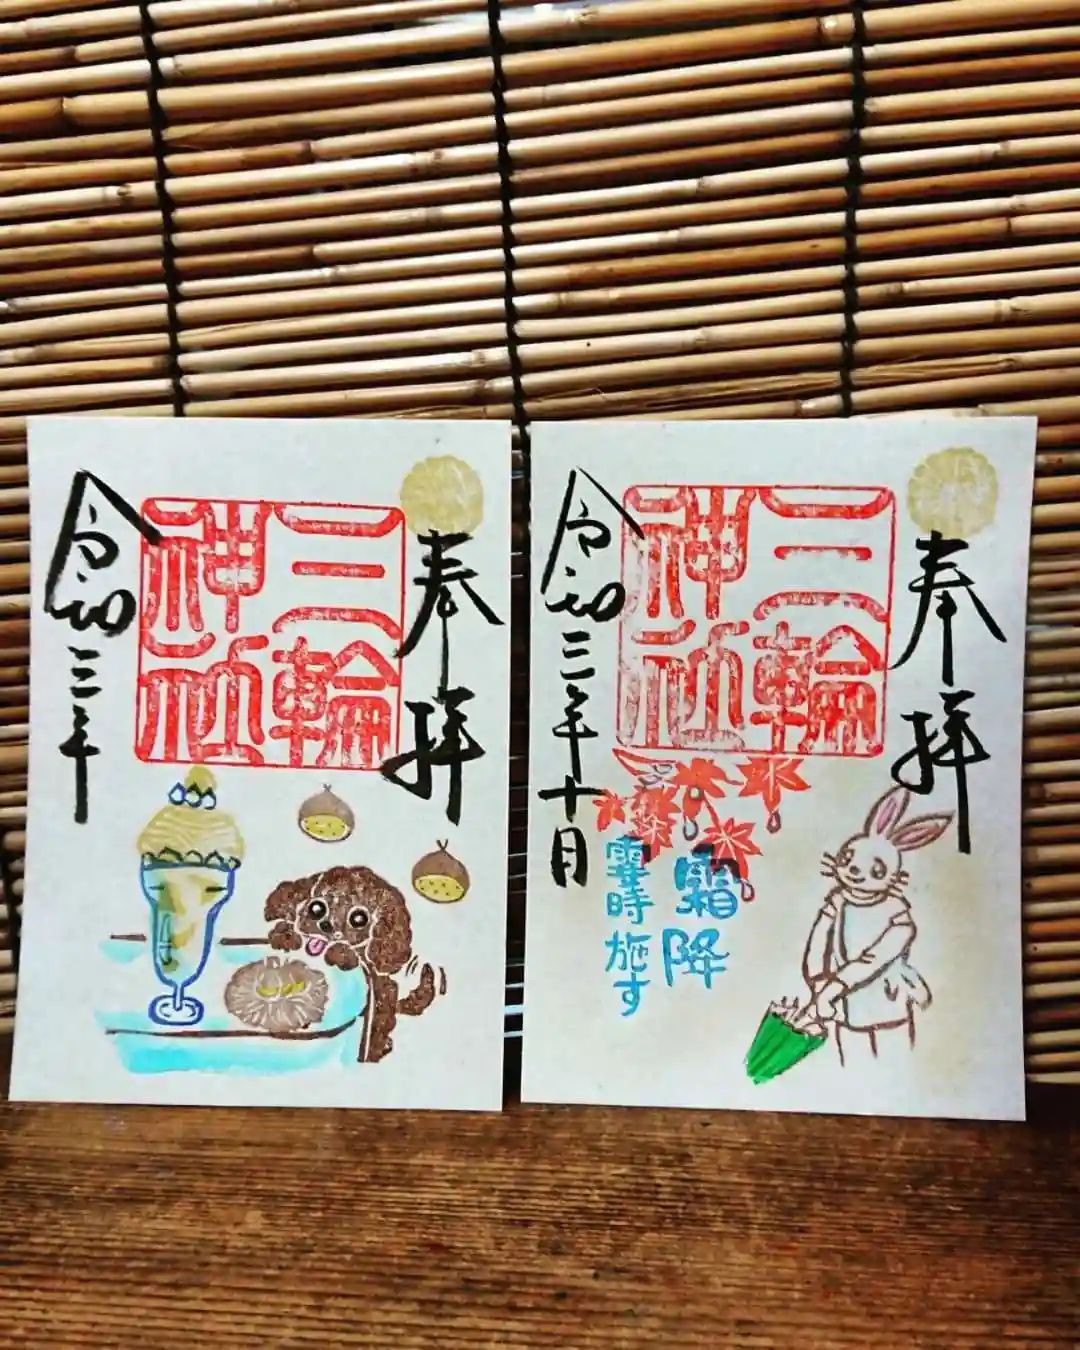 奉拝
三輪
神社
令和三年
奉拝
三輪
神社
令和三年十月
霜降
霎時施す